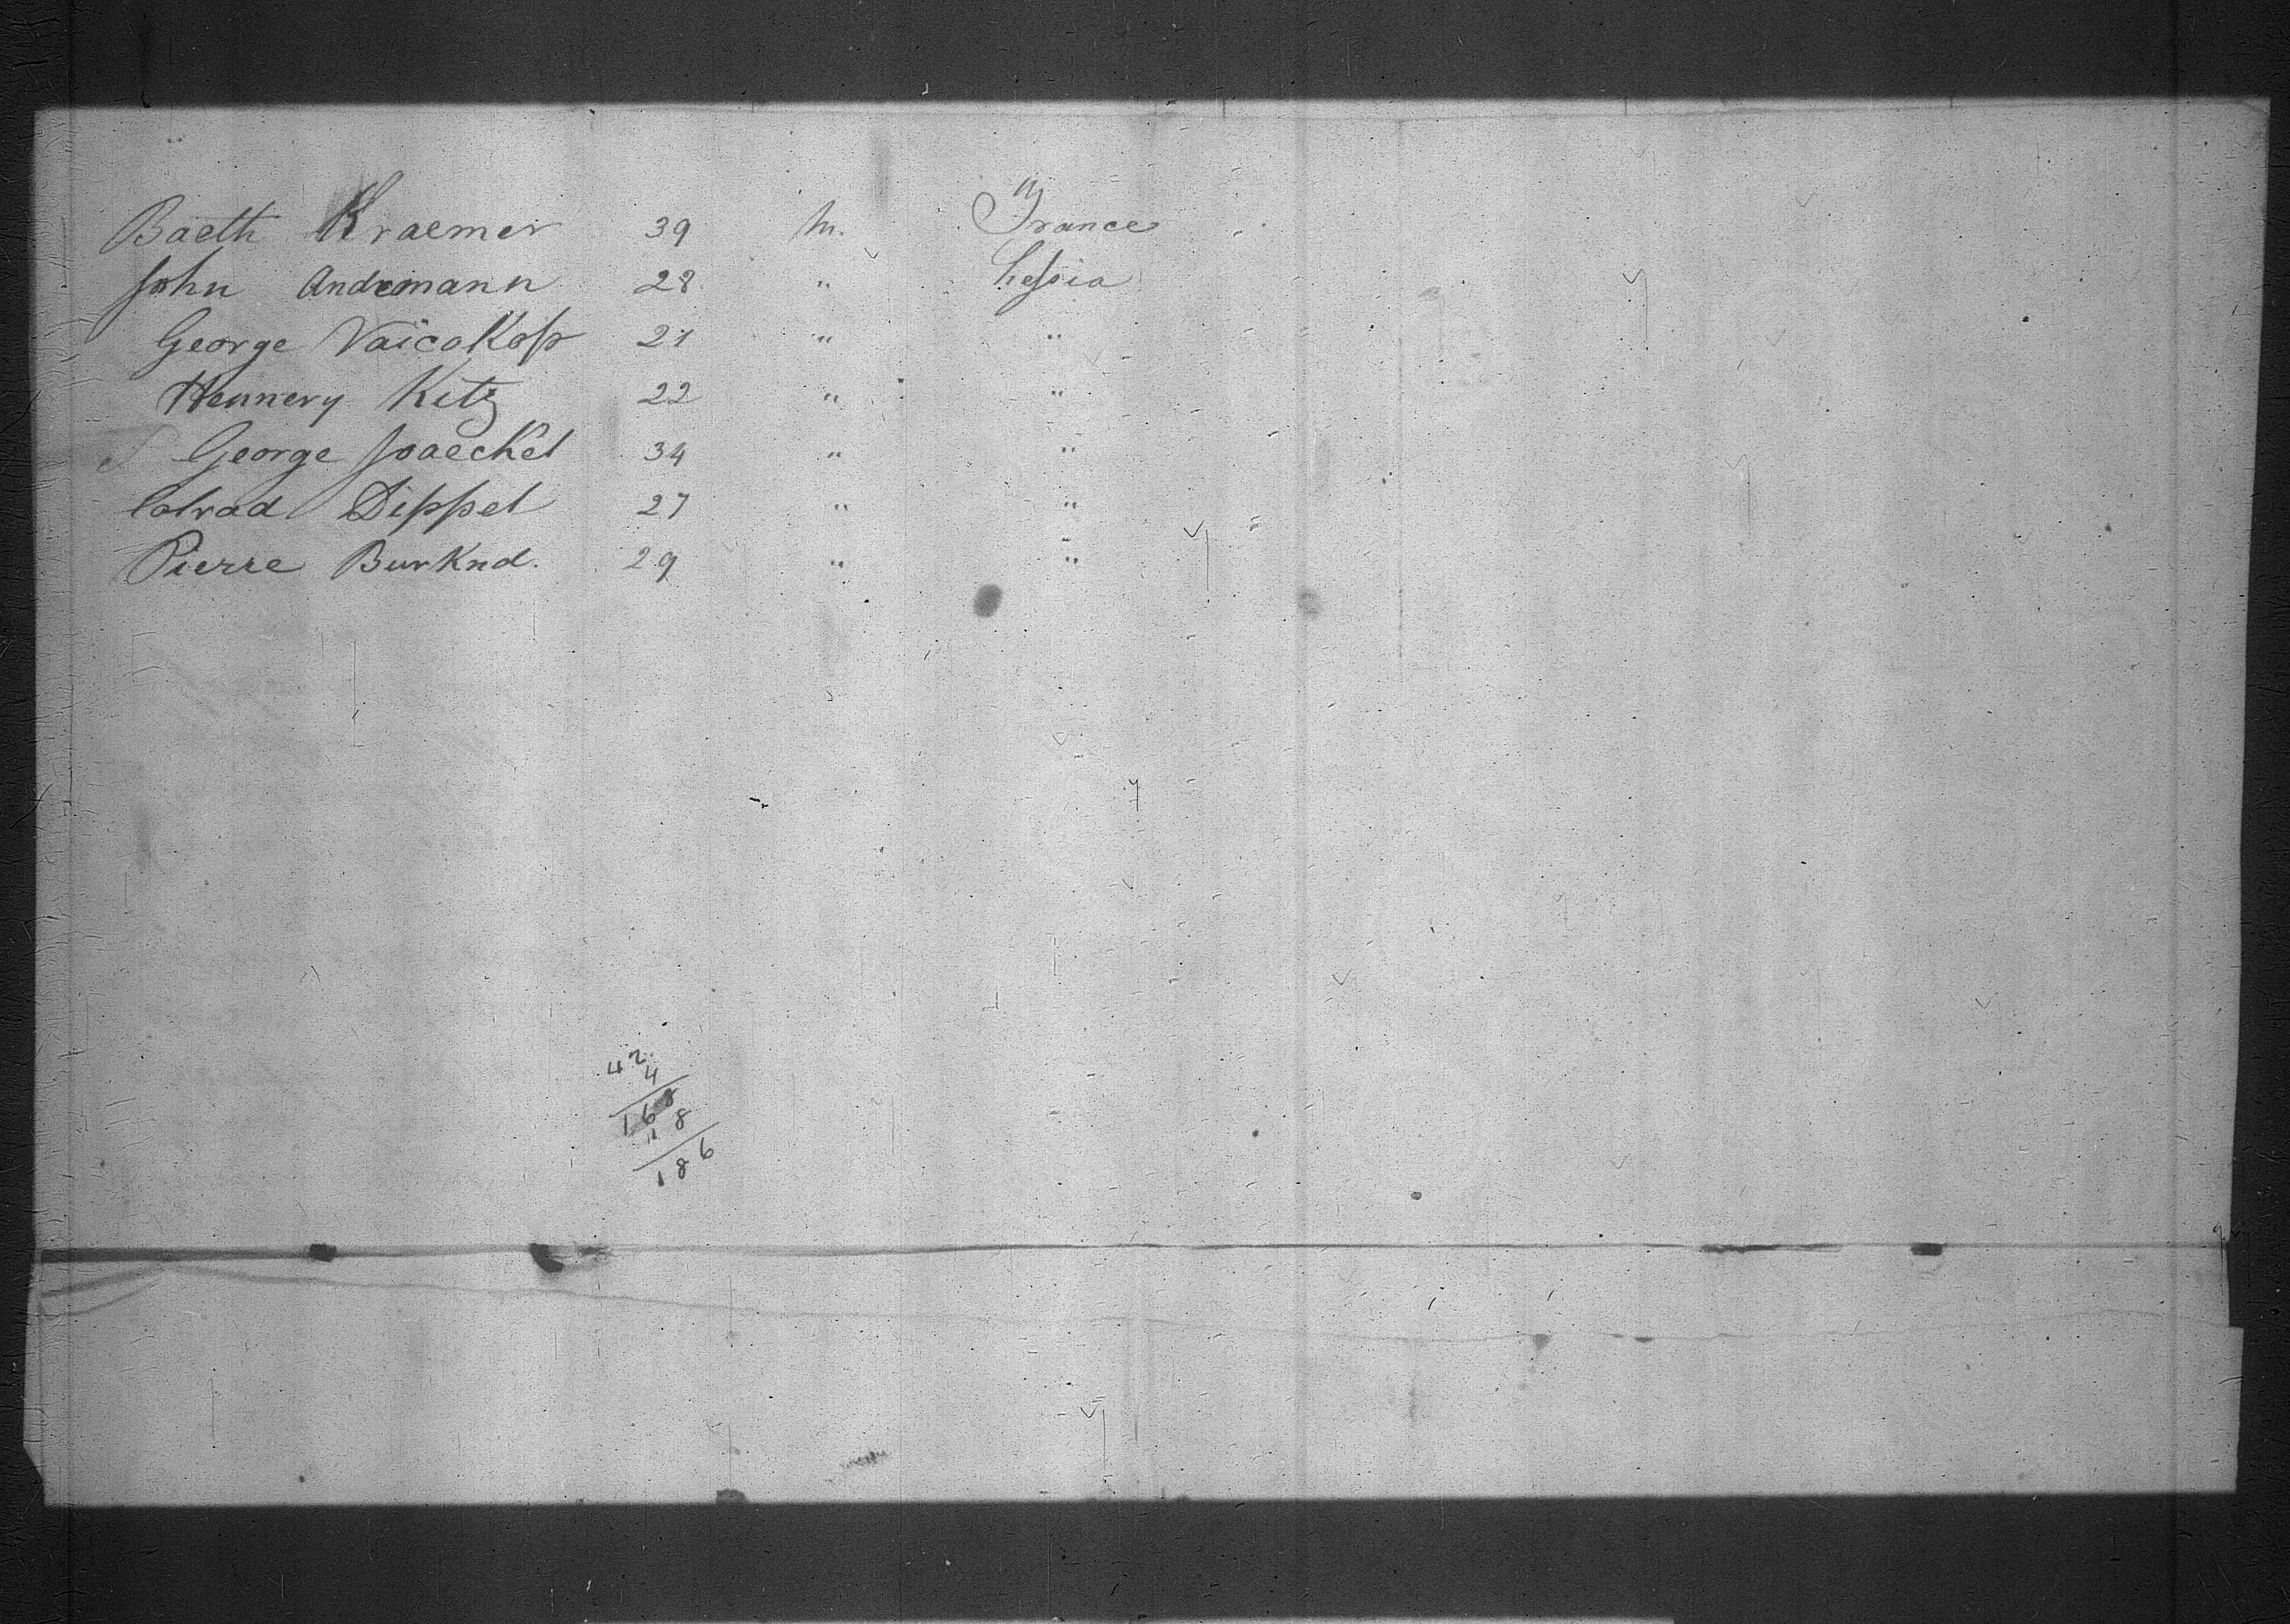 Baeth Kraemer 39 m. France
John Andemann 28 " hessia
George Vaicakop 21 " "
Hennery Kitz 22 " "
George Joaeckel 34 " "
Colrad Dippel 27 " "
Pierre Burknd. 29 " "
42
4
168
18
186